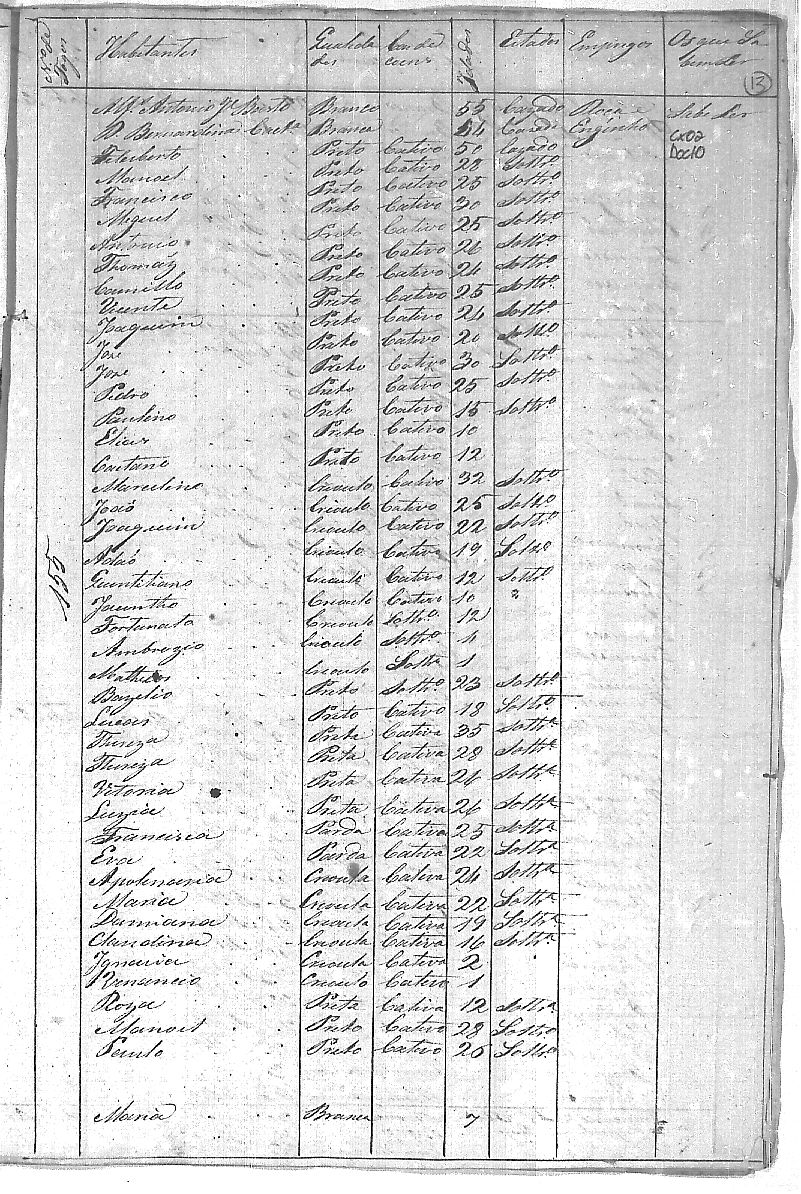 N.º de Fogos Habitantes Qualidades Con de cuns Idades Estados Empregos Os que Sabem Ler
13
Alf.s Antonio J.e Branco 55 Cazado Roça e Sabe Ler
D. Bernardina Branca 44 Cazada Engenho
Cx02
Doc10
Feleberto Preto Cativo 50 Cazado
Manoel Preto Cativo 28 Soltr.o
Francisco Preto Cativo 25 Soltr.o
Miguel Preto Cativo 30 Soltr.o
Antonio Preto Cativo 25 Soltr.o
Thomáz Preto Cativo 26 Soltr.o
Camillo Preto Cativo 24 Soltr.o
Vicente Preto Cativo 25 Soltr.o
Joaquim Preto Cativo 24 Soltr.o
Joze Preto Cativo 20 Soltro
Joze Preto Cativo 30 Soltr.o
Pedro Preto Cativo 25 Soltr.o
Paulino Preto Cativo 15 Soltr.o
Elias Preto Cativo 10
Caetano Preto Cativo 12
Marculino Crioulo Cativo 32 Soltr.o
João Crioulo Cativo 25 Soltro
Joaquim Crioulo Cativo 22 Soltr.o
155
Adão Crioulo Cativo 19 Soltro
Quintiliano Crioulo Cativo 12 Soltr.o
Jacintho Crioulo Cativo 10 "
Fortunato Crioulo Soltr.o 12
Ambrozio Crioulo Soltr.o 4
Matheos Crioulo Soltr 1
Bazelio Preto Soltr.o 23 Soltr.o
Lucas Preto Cativo 18 Soltro
Thereza Preta Cativa 35 Soltr.a
Thereza Preta Cativa 28 Soltr.a
Vitoria Preta Cativa 26 Soltr.a
Luzia Preta Cativa 26 Soltr.a
Francisca Parda Cativa 25 Soltr.a
Eva Parda Cativa 22 Soltr.a
Apolinaria Crioula Cativa 24 Soltr.a
Maria Crioula Cativa 22 Soltr.a
Damiana Crioula Cativa 19 Soltr.a
Claudina Crioula Cativa 16 Soltr.a
Ignacia Crioula Cativa 2
Venancio Crioulo Cativo 1
Roza Preta Cativa 12 Soltr.a
Manoel Preto Cativo 28 Soltro
Paulo Preto Cativo 26 Soltr.o
Maria Branca 7